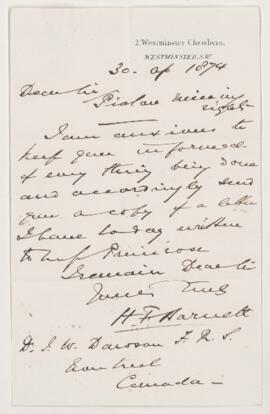 2, Westminster Chambers,
WESTMINSTER, S.W.
30. Ap 1874
Dear Sir
Pictou mining
rights
I am anxious to
keep you informed
of every thing being done
and accordingly send
you a copy of a letter
I have today written
to Primrose
I remain Dear Sir
Yours Truly
H. F. Barnett
Dr. J. W. Dawson F. R. S.
Montreal
Canada